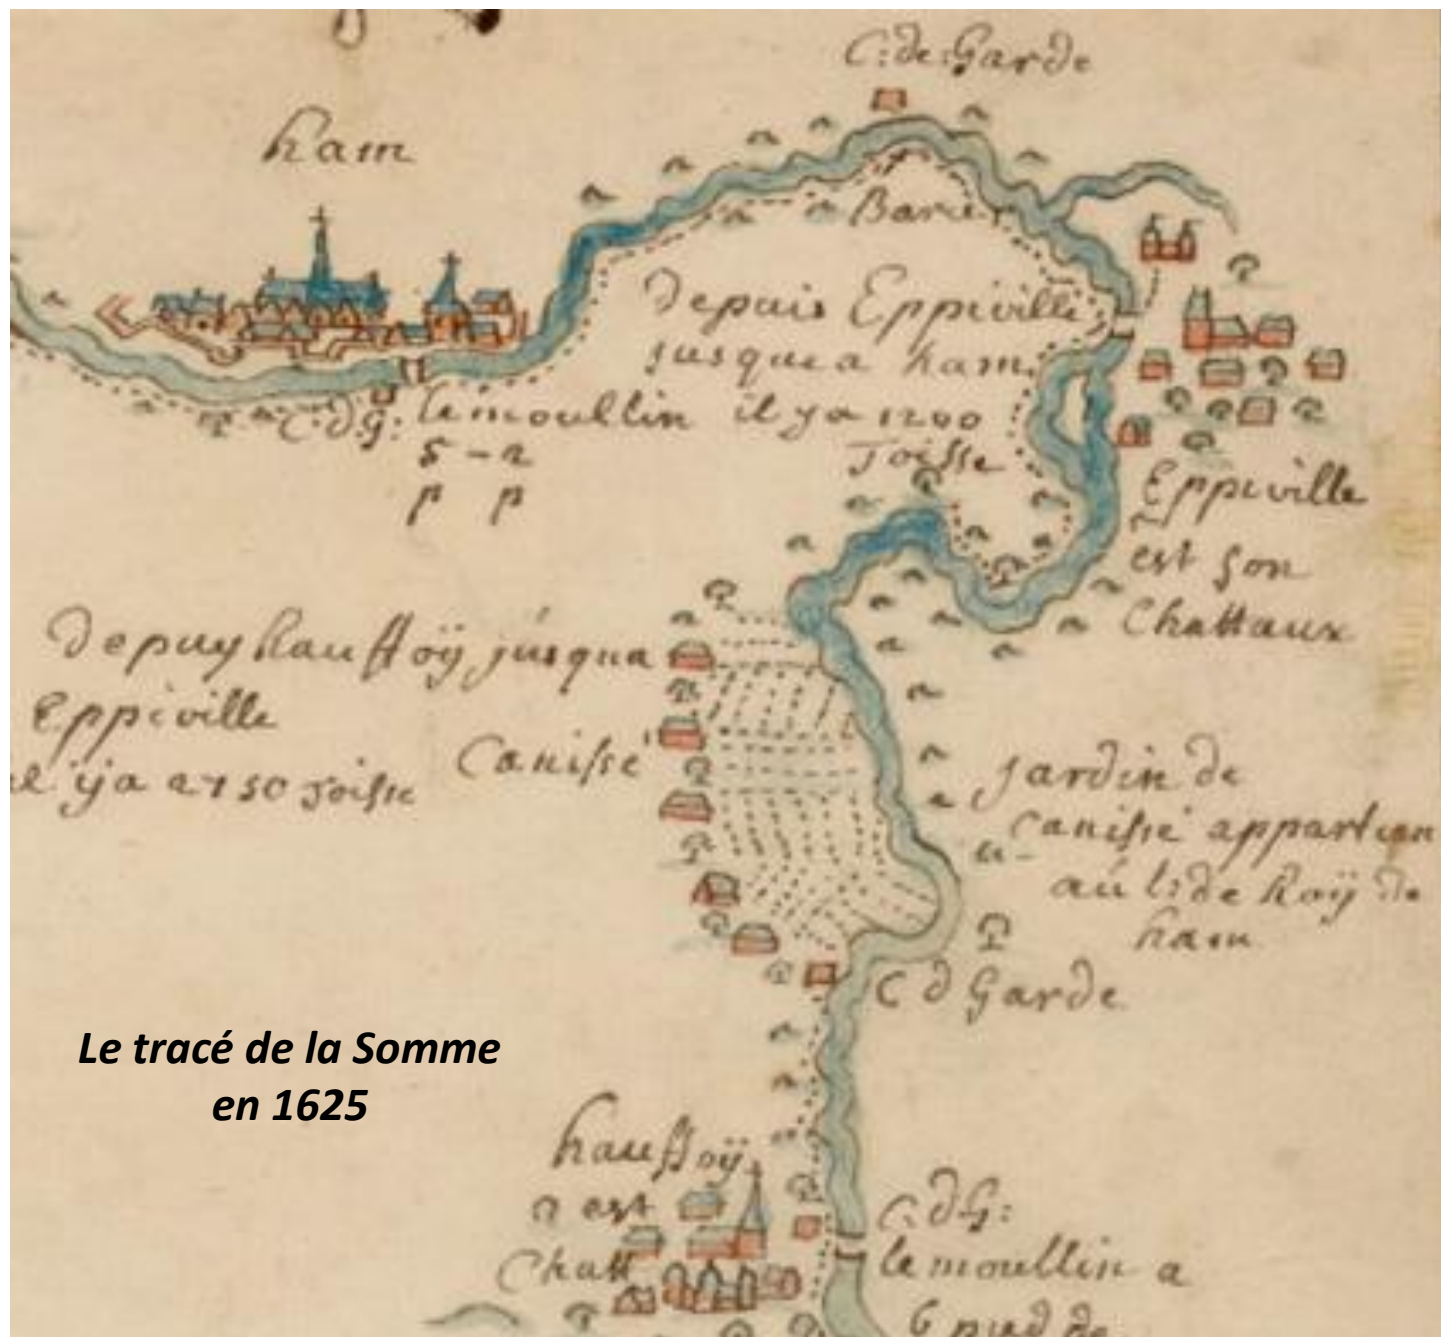 C: de: Garde
ham
Barier
depuis Eppivillé
jusque a ham
C: d: G: le moullin il y a 1200
Toisse
5 - 2
p p
Eppiville
est son
Chattaux
depuy hauffoÿ jusqua
Eppiville
il ÿ a 2750 Toisse
Canisse
Jardin de
Canisse appartien
au l: de Roÿ de
ham
C d Garde
Le tracé de la Somme
en 1625
hauffoÿ
est
Chatt
C: d G:
le moullin a
6 pied de